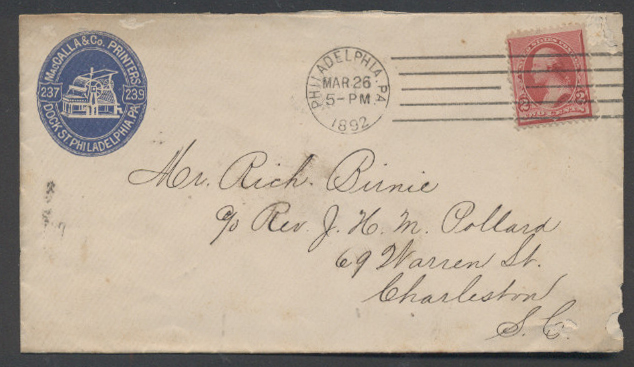 MacCALLA & Co. PRINTERS
237 239
DOCK ST. PHILADELPHIA PA
PHILADELPHIA, PA.
MAR 26
5-PM
1892
2 2
Mr. Rich. Birnie
c/o Rev. J. H. M. Pollard
69 Warren St.
Charleston
S. C.